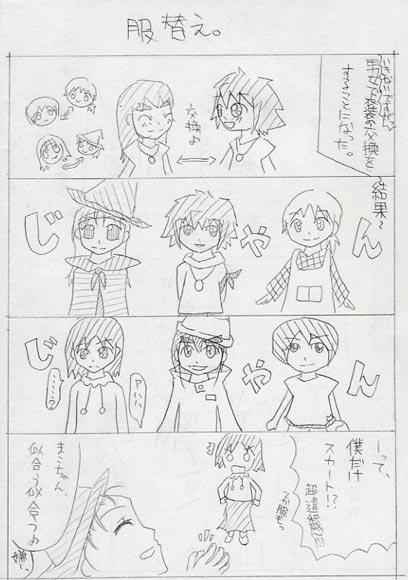 服替え。
いきなりですがっ
男女で衣装の交換を
することになった。
交換よ
〜結果〜
じゃやん
じゃやん
……?
アハハ
ーって、
僕だけ
スカート!?
超違和感!!!
まこちゃん、
似合う似合うよ
嫌ーっ